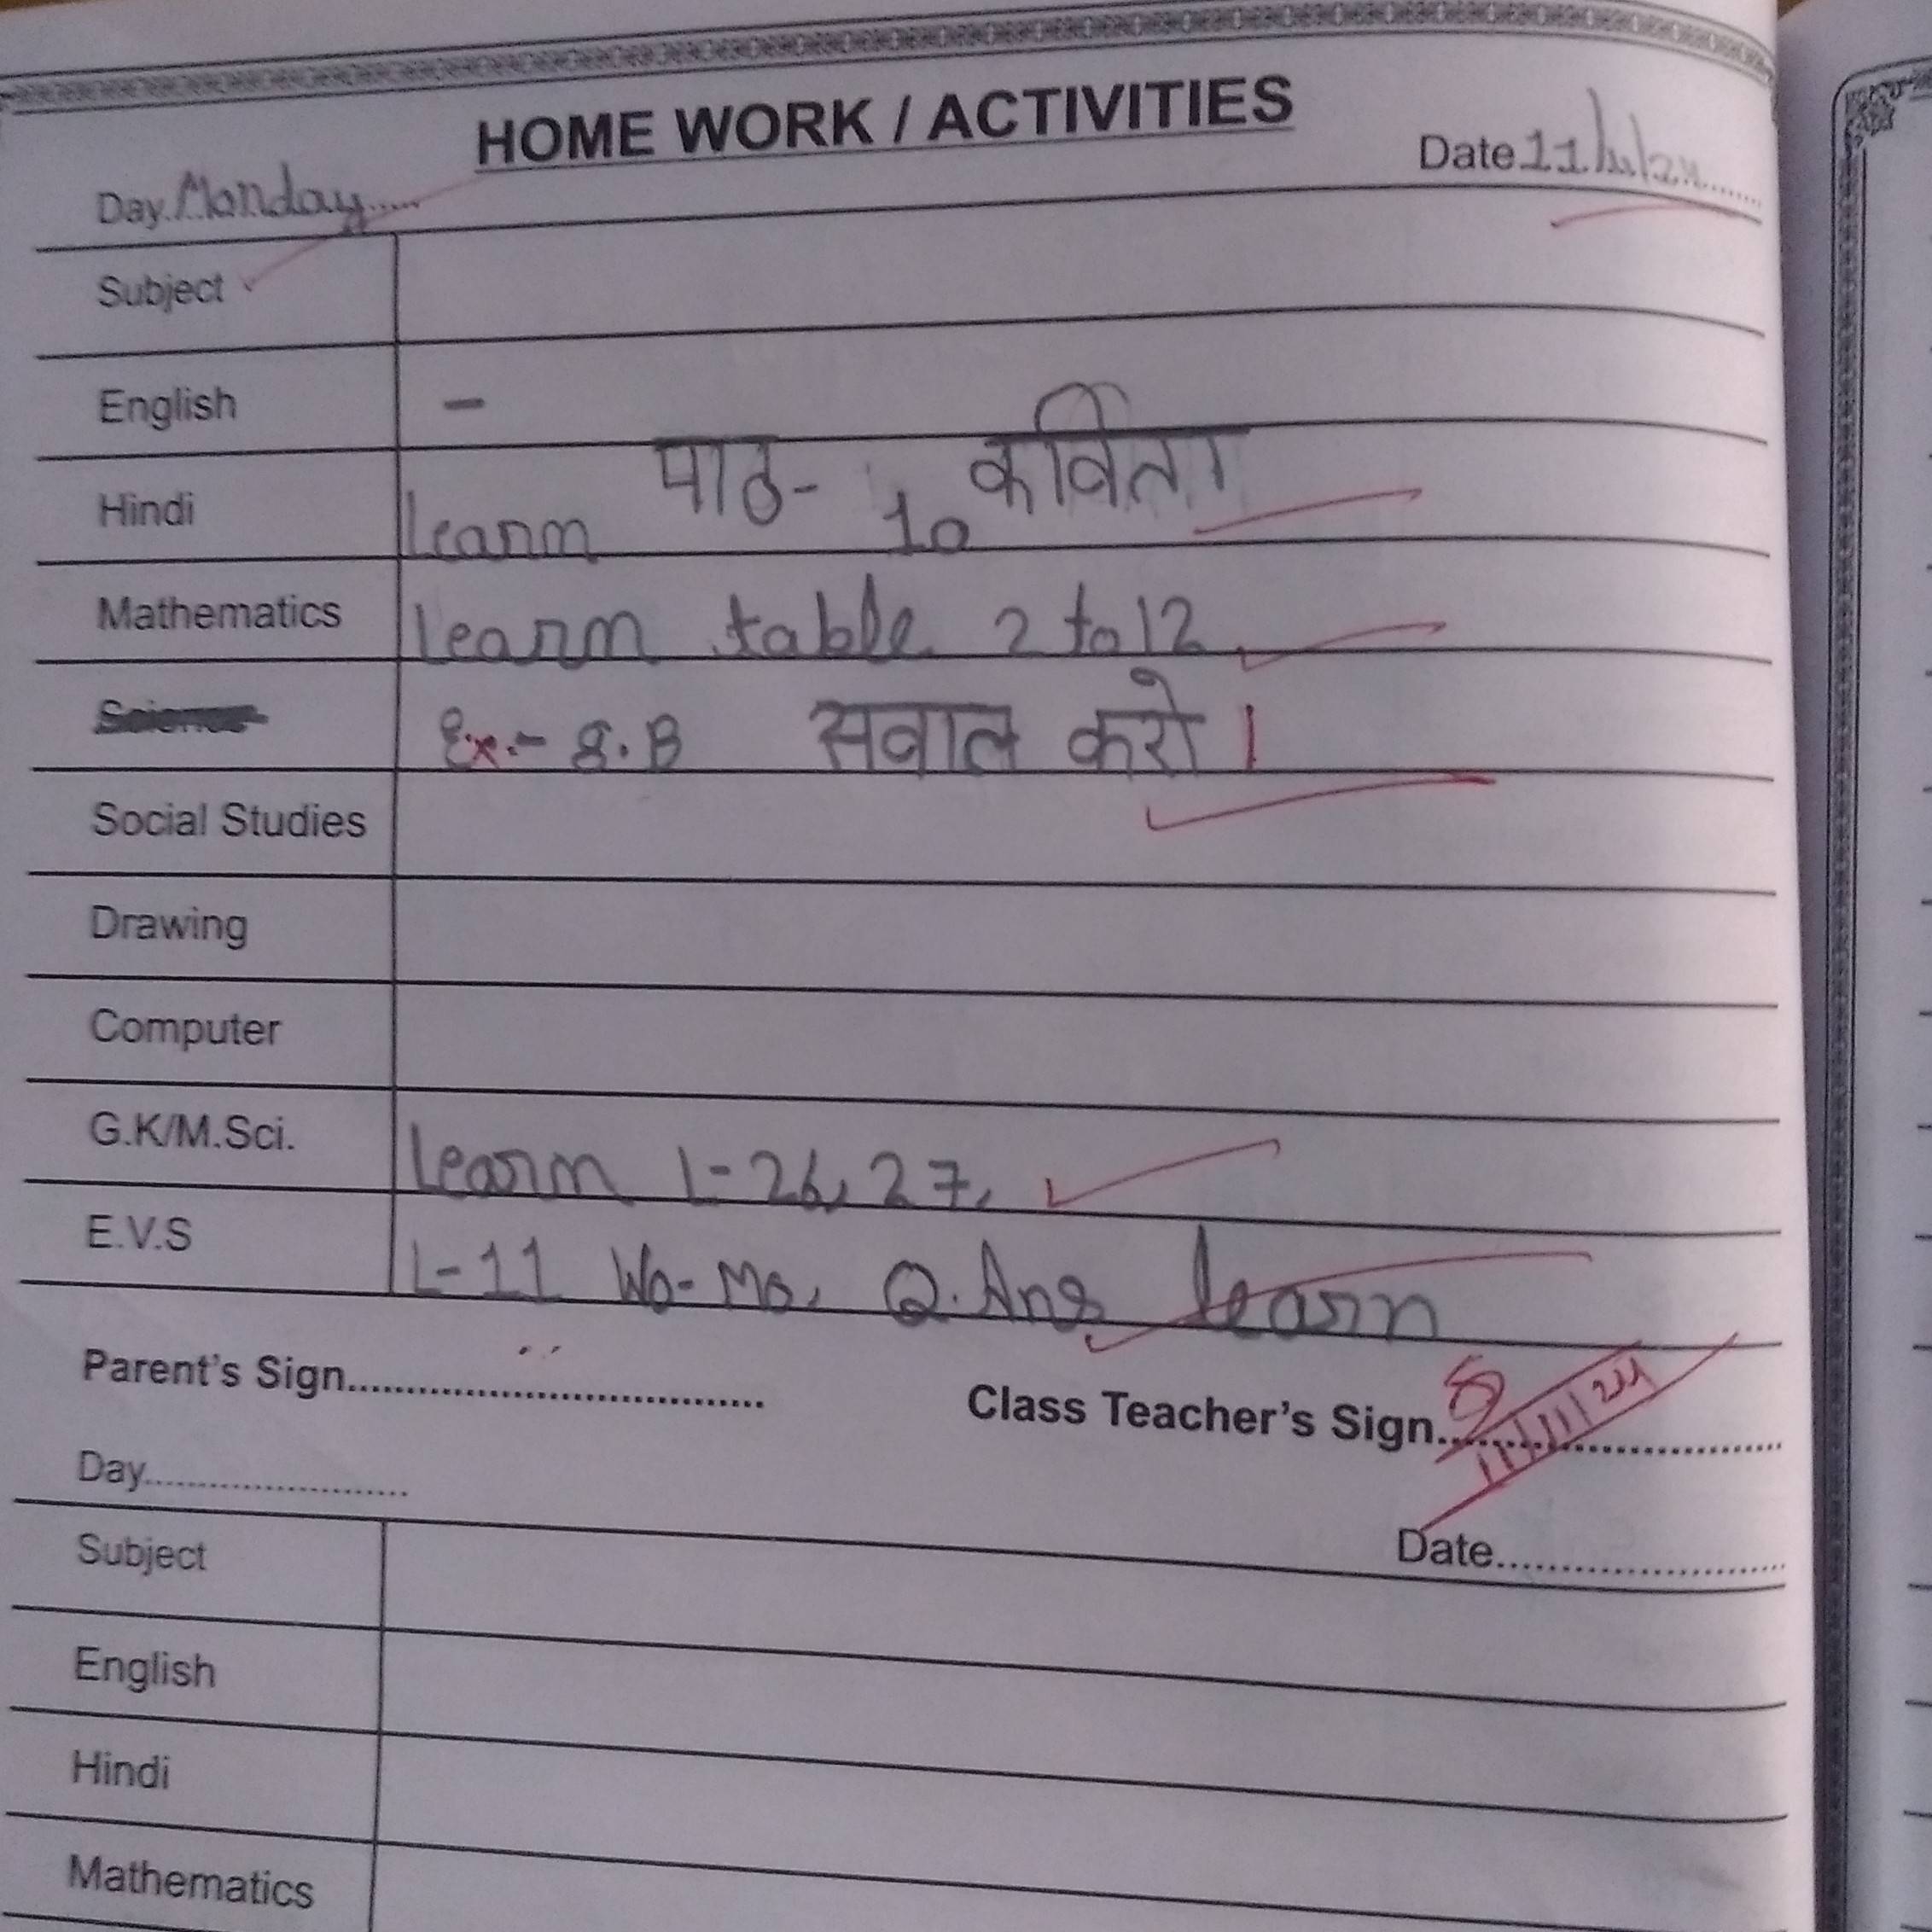 HOME WORK / ACTIVITIES
Day. Monday..... Date 11/11/24
Subject
English -
Hindi learn पाठ- 10 कविता
Mathematics learn table 2 to 12
Science Ex.- 8.B सवाल करो।
Social Studies
Drawing
Computer
G.K/M.Sci. learn L-26, 27,
E.V.S L-11 Wo-Mo, Q.Ans learn
Parent's Sign.................................... Class Teacher's Sign.............................. 11/11/24
Day....................... Date.........................
Subject
English
Hindi
Mathematics